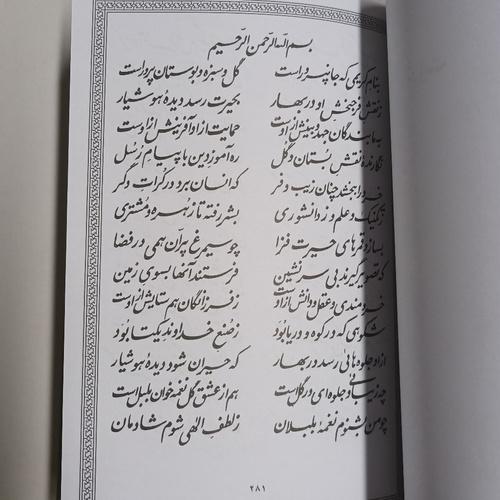 بسم الله الرّحمن الرّحیم
بنام کریمی که جانپرور است گل و سبزه و بوستان پرور است
ز نقش فرح‌بخش او در بهار بحیرت رسد دیدهٔ هوشیار
به ما بندگان جهد و بینش ازوست حمایت از او آفرینش ازوست
نگارندهٔ نقش بستان و گل ره‌آموز دین با پیام رسل
خرد را ببخشد چنان زیب و فر که انسان برد در کرات دگر
تکنیک و علم و ز دانشوری بشر رفته تا زهره و مشتری
بسازد قمرهای حیرت فزا چو سیمرغ پرّان همی در فضا
که تصویر گیرند بی سرنشین فرستند آنها بسوی زمین
خردمندی و عقل و دانش ازوست ز فرزانگان هم ستایش ازوست
شکوهی که در کوه و دریا بُوَد ز صُنع خداوند یکتا بُوَد
از او جلوه‌هائی رسد در بهار که حیران شود دیدهٔ هوشیار
چه زیبائی و جلوه‌ای در گل است هم از عشق گل نغمه‌خوان بلبل است
چو من بشنوم نغمهٔ بلبلان ز لطف الهی شوم شادمان
۲۸۱